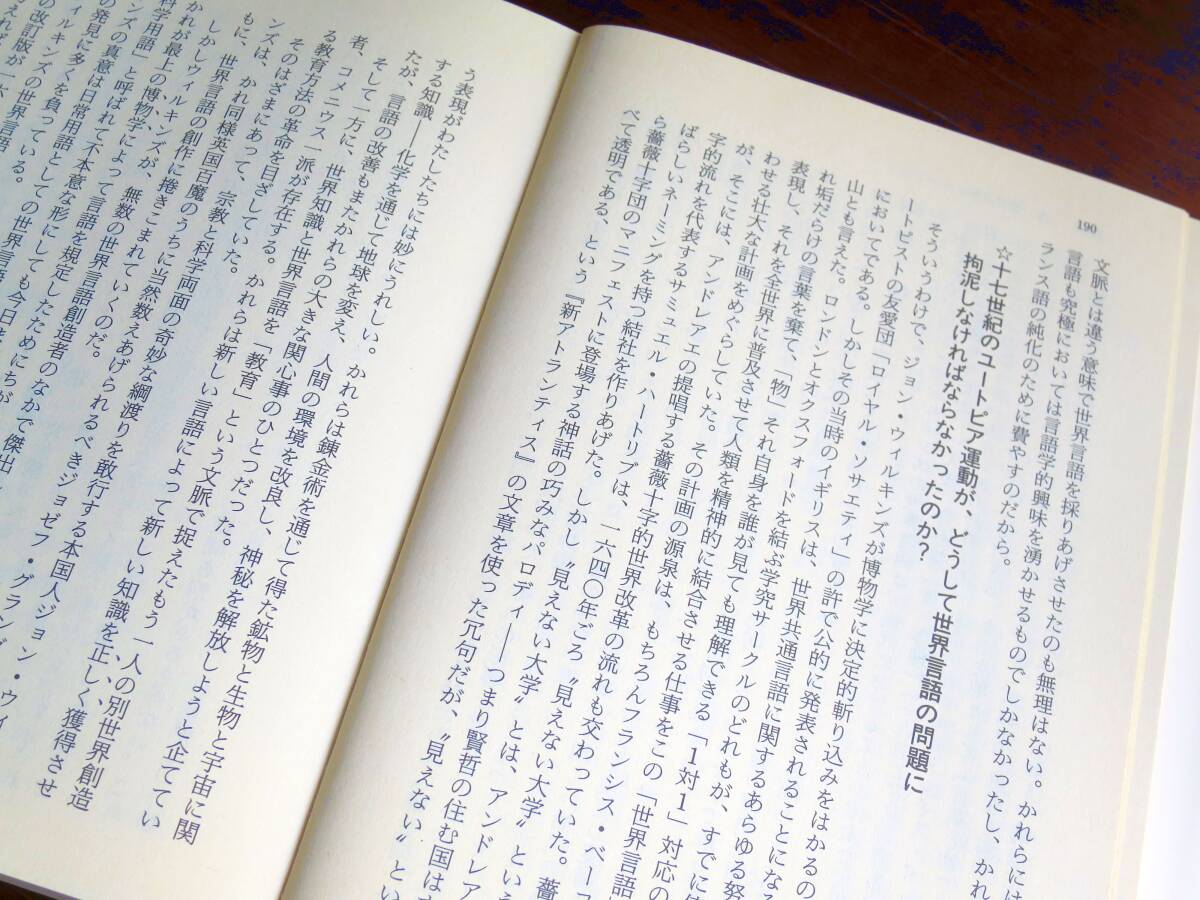 190
文脈とは違う意味で世界言語を採りあげさせたのも無理はない。かれらには
ランス語の純化のために費やすのだから。
言語も究極においては言語学的興味を湧かせるものでしかなかったし、かれ
☆十七世紀のユートピア運動が、どうして世界言語の問題に
拘泥しなければならなかったのか?
そういうわけで、ジョン・ウィルキンズが博物学に決定的斬り込みをはかるの
ートピストの友愛団「ロイヤル・ソサエティ」の許で公的に発表されることになる
においてである。しかしその当時のイギリスは、世界共通言語に関するあらゆる努
山とも言えた。ロンドンとオクスフォードを結ぶ学究サークルのどれもが、すでに
れ垢だらけの言葉を棄て、「物」それ自身を誰が見ても理解できる「1対1」対応の
表現し、それを全世界に普及させて人類を精神的に結合させる仕事をこの「世界言語
わせる壮大な計画をめぐらしていた。その計画の源泉は、もちろんフランシス・ベーコ
が、そこには、アンドレアエの提唱する薔薇十字的世界改革の流れも交わっていた。薔
字的流れを代表するサミュエル・ハートリブは、一六四〇年ごろ〝見えない大学〟という
ばらしいネーミングを持つ結社を作りあげた。しかし〝見えない大学〟とは、アンドレア
ら薔薇十字団のマニフェストに登場する神話の巧みなパロディ――つまり賢哲の住む国は
べて透明である、という『新アトランティス』の文章を使った冗句だが、〝見えない〟とい
う表現がわたしたちには妙にうれしい。かれらは錬金術を通じて得た鉱物と生物と宇宙に関
する知識――化学を通じて地球を変え、人間の環境を改良し、神秘を解放しようと企ててい
たが、言語の改善もまたかれらの大きな関心事のひとつだった。
そして一方に、世界知識と世界言語を「教育」という文脈で捉えたもう一人の別世界創造
者、コメニウス一派が存在する。かれらは新しい言語によって新しい知識を正しく獲得させ
る教育方法の革命を目ざしていた。
そのはざまにあって、宗教と科学両面の奇妙な綱渡りを敢行する本国人ジョン・ウィ
ンズは、かれ同様英国百魔のうちに当然数えあげられるべきジョゼフ・グランヴ
もに、世界言語の創作に捲きこまれていくのだ。
しかしウィルキンズが、無数の世界言語創造者のなかで傑出
かれが最上の博物学によって言語を規定したためにちが
科学用語」と呼ばれて不本意な形にしても今日ま
ンズの真意は日常用語としての世界言語
の発見に多くを負っている。
ィルキンズの世界言語
の改訂版が一六